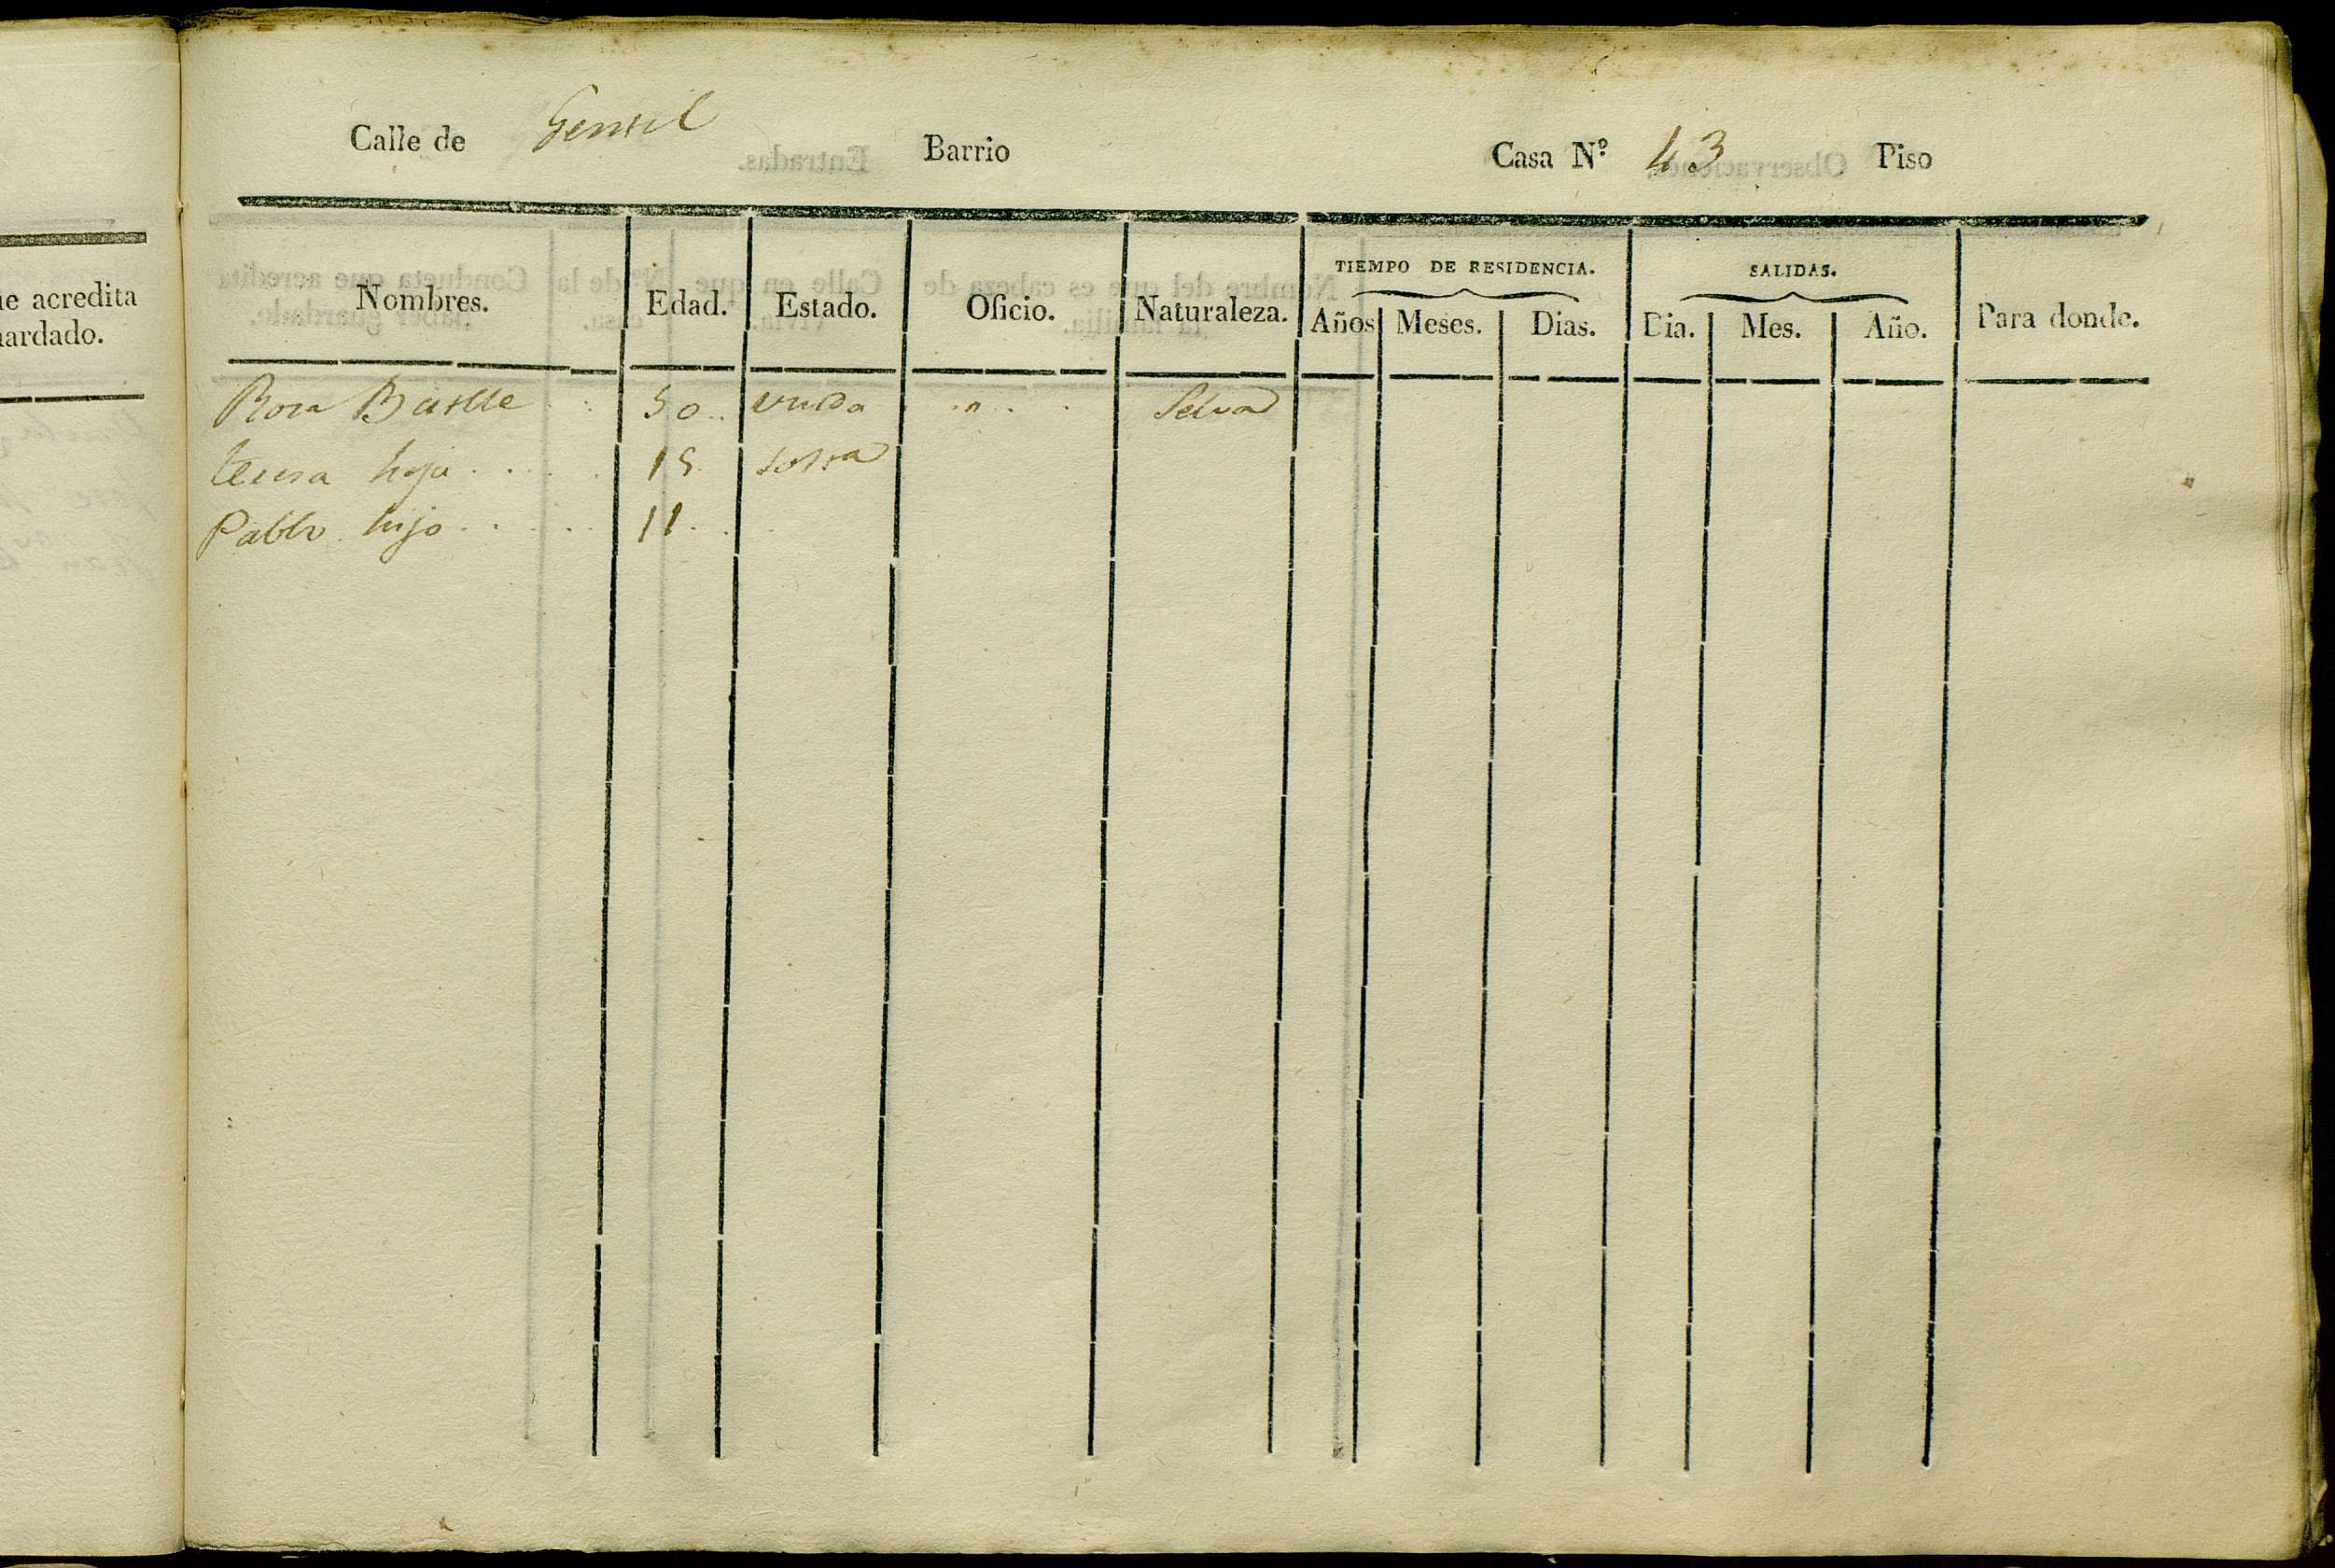 Calle de Gensil Barrio Casa Nº 43 Piso
TIEMPO DE RESIDENCIA. SALIDAS.
Nombres. Edad. Estado. Oficio. Naturaleza. Años Meses. Dias. Dia. Mes. Año. Para donde.
Rosa 50 viuda Selva
teresa hija 15
Pablo hijo 11
ue acredita
uardado.